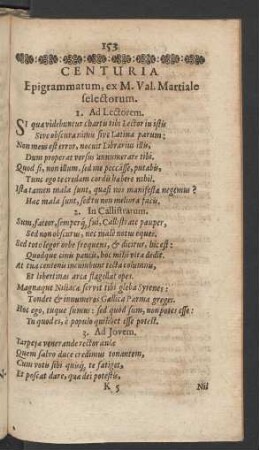 153
CENTURIA
Epigrammatum, ex M. Val. Martiale
selectorum.
1. Ad Lectorem.
SI qua videbuntur chartis tibi Lector in istis
Sive obscura nimis sive Latina parum:
Non meus est error, nocuit Librarius illis,
Dum properat versus annumerare tibi.
Quod si, non illum, sed me peccâsse, putabis,
Tunc ego te credam cordis habere nihil.
Ista tamen mala sunt, quasi nos manifesta negemus?
Hæc mala sunt, sed tu non meliora facis.
2. In Callistratum.
Sum, fateor, semperq́;, fui, Callistrate pauper,
Sed non obscurus, nec malè notus eques:
Sed toto legor orbe frequens, & dicitur, hic est:
Quodque cinis paucis, hoc mihi vita dedit.
At tua centenis incumbunt tecta columnis,
Et libertinas arca flagellat opes.
Magnaque Niliacæ servit tibi gleba Syenes:
Tondet & innumeros Gallica Parma greges.
Hoc ego, tuque sumus: sed quod sum, non potes esse:
Tu quod es, è populo quilibet esse potest.
3. Ad Jovem.
Tarpejæ venerande rector aulæ
Quem salvo duce credimus tonantem,
Cum votis sibi quisq́, te fatiget,
Et poscat dare, quæ dei potestis,
K 5 Nil